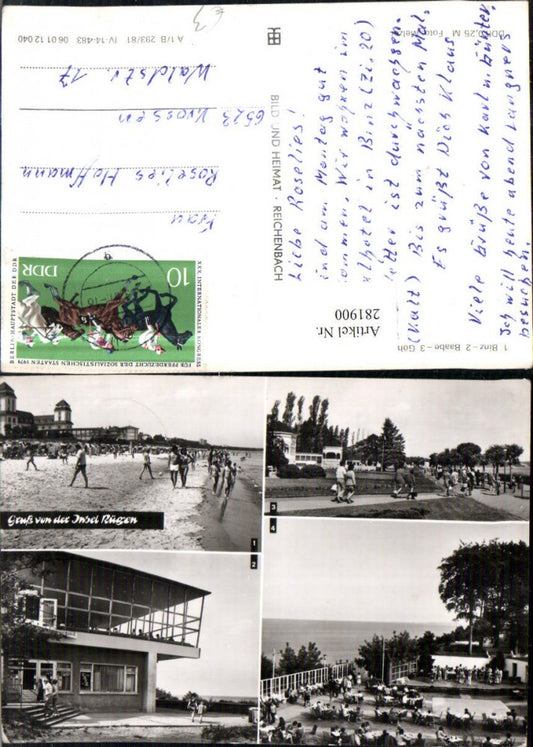 1 Binz – 2 Baabe – 3 Göh
Liebe Roselies!
ind am Montag gut
ommen. Wir wohnen im
lhotel in Binz (Zi. 20)
etter ist durchwachsen.
(kalt) Bis zum nächsten Mal.
Es grüßt Dich Klaus
Viele Grüße von Karl u. Günter.
Ich will heute abend Langners
besuchen.
BILD UND HEIMAT · REICHENBACH
DDR 0,25 M Foto:
A 1/B 293/81 IV-14-483 06 01 12 040
Artikel Nr.
281900
XXX. INTERNATIONALER KONGRESS
FÜR PFERDEZUCHT DER SOZIALISTISCHEN STAATEN 1979
BERLIN · HAUPTSTADT DER DDR
DDR
10
Frau
Roselies Hoffmann
6523 Krossen
Waldstr. 17
Gruß von der Insel Rügen
1
2
3
4